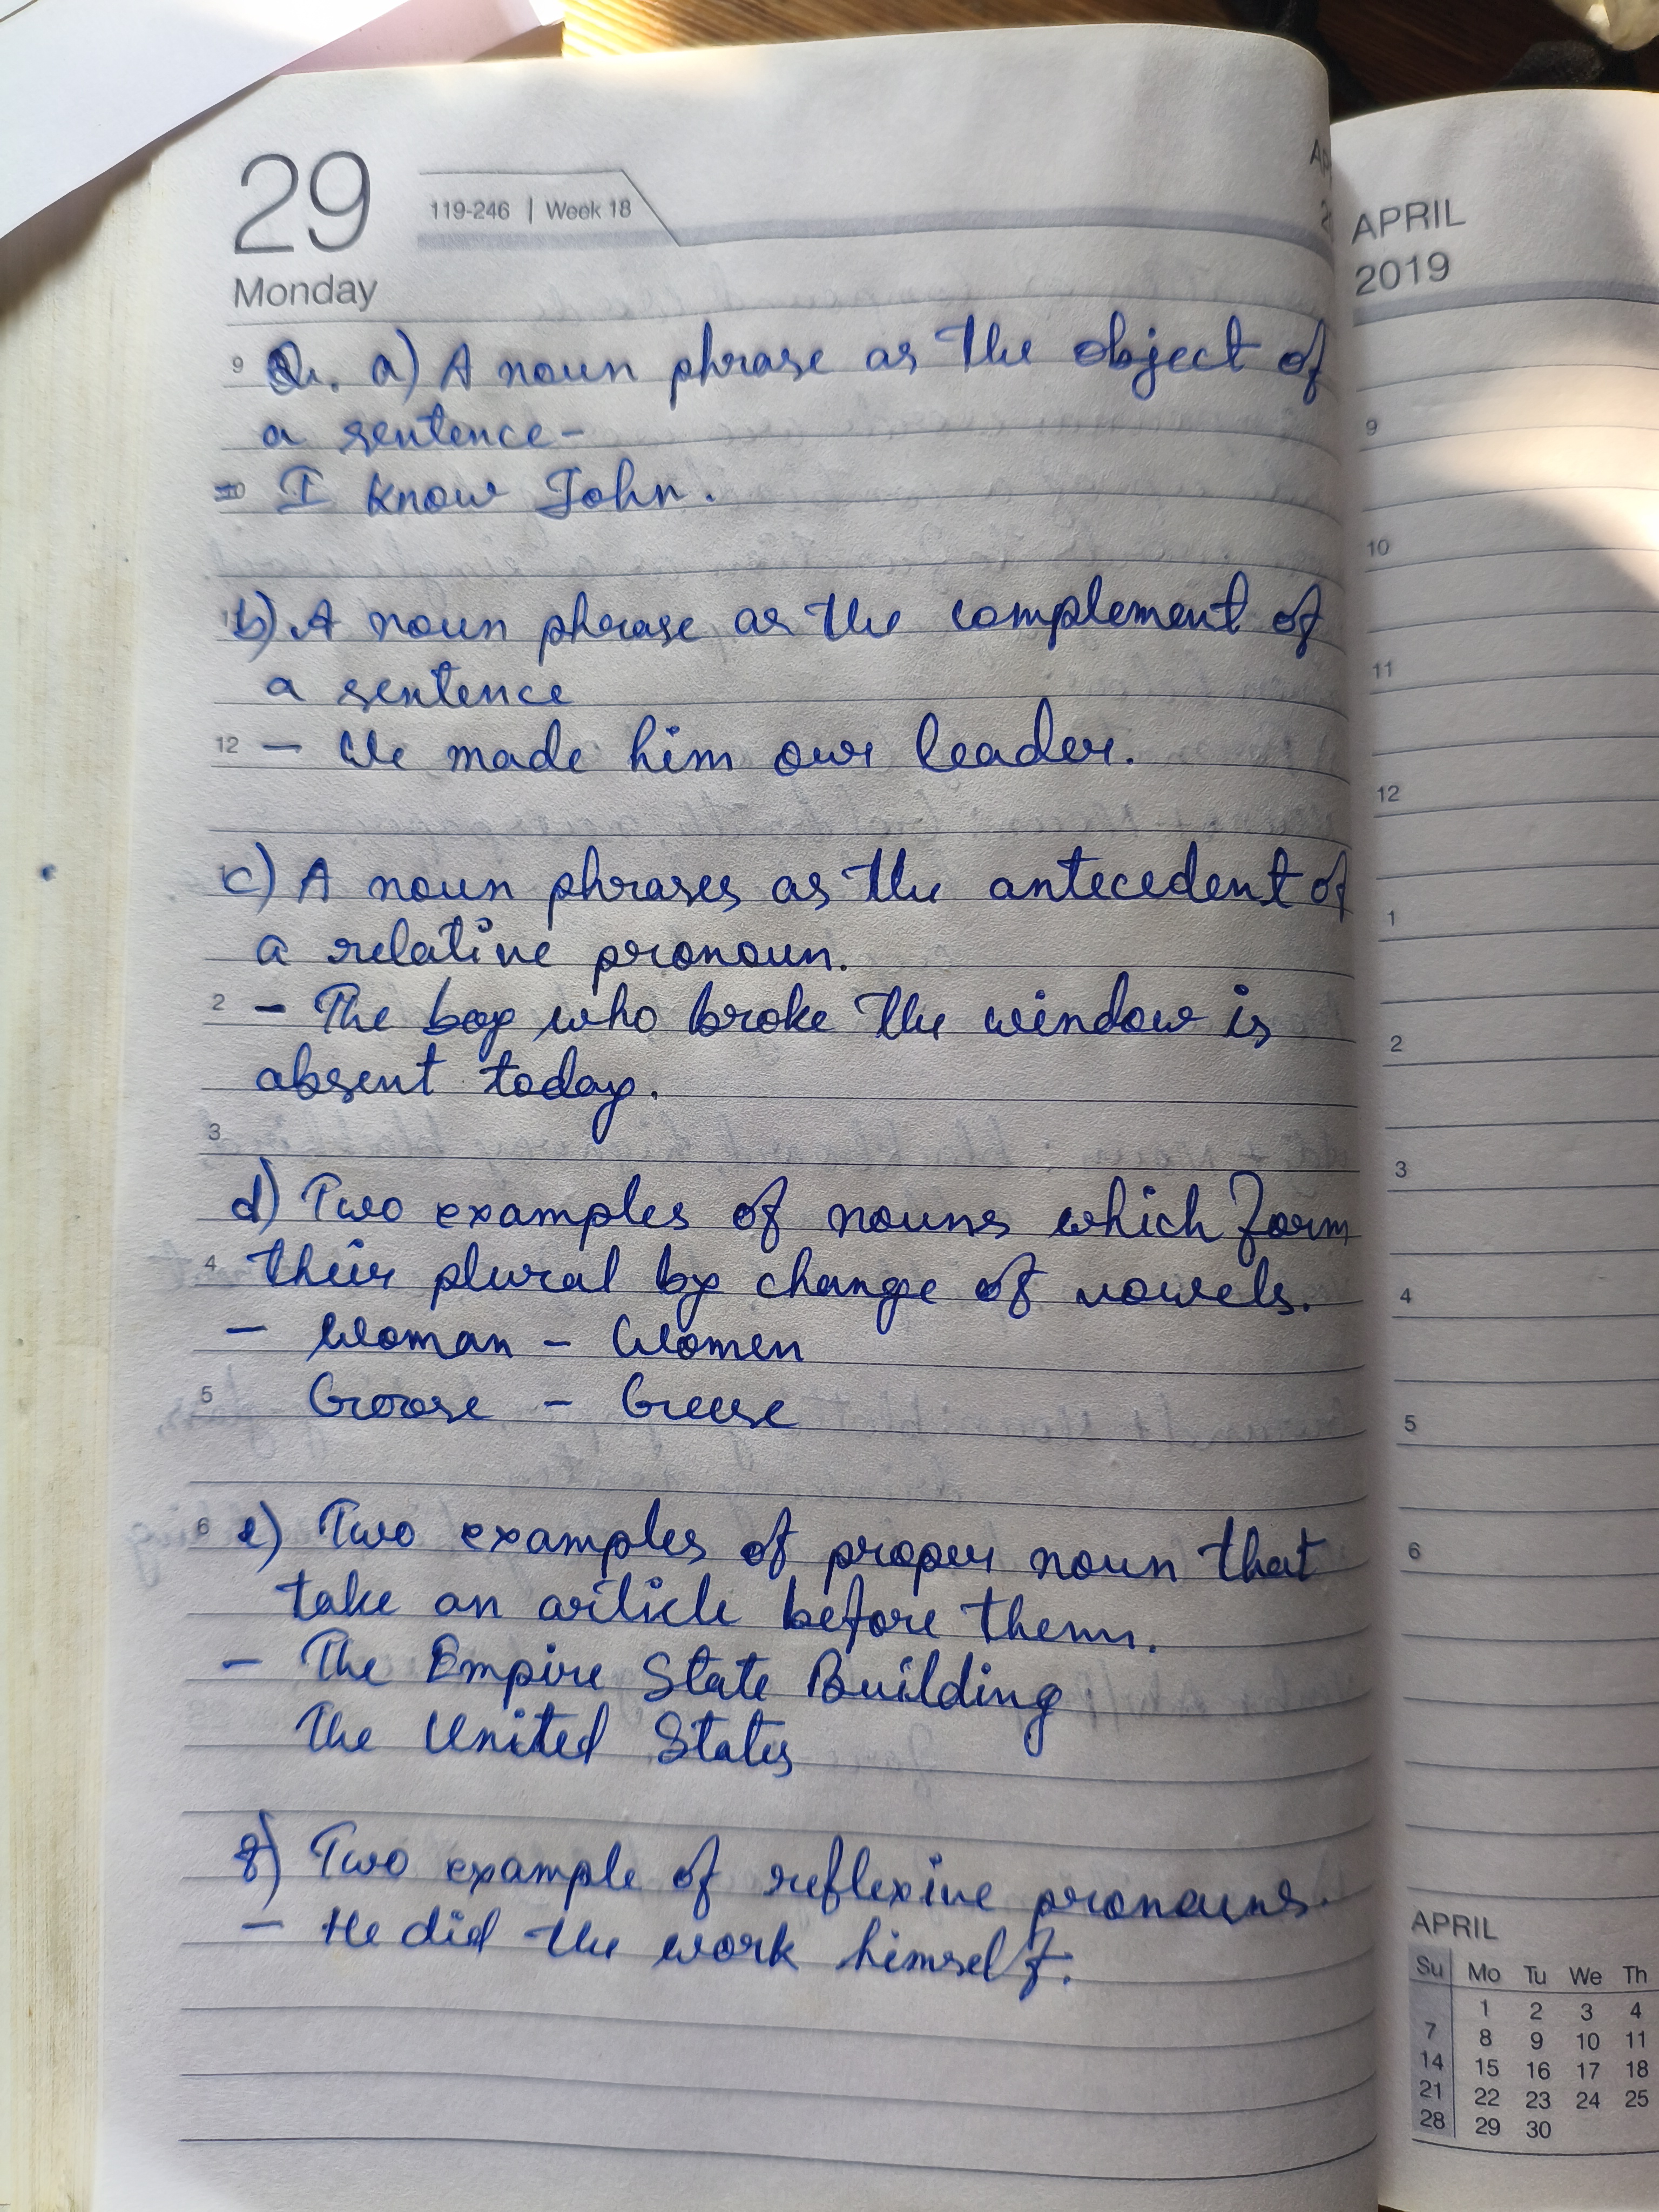 29
119-246 | Week 18
Monday
9 Q. a) A noun phrase as the object of
a sentence-
= I know John.
b) A noun phrase as the complement of
a sentence
12 - We made him our leader.
c) A noun phrases as the antecedent of
a relative pronoun.
2 - The boy who broke the window is
absent today.
3
d) Two examples of nouns which form
4 their plural by change of vowels.
- Woman - Women
5 Goose - Geese
6 e) Two examples of proper noun that
take an article before them.
- The Empire State Building
The United States
f) Two example of reflexive pronouns.
- He did the work himself.
APRIL
2019
9
10
11
12
1
2
3
4
5
6
APRIL
Su Mo Tu We Th
1 2 3 4
7 8 9 10 11
14 15 16 17 18
21 22 23 24 25
28 29 30